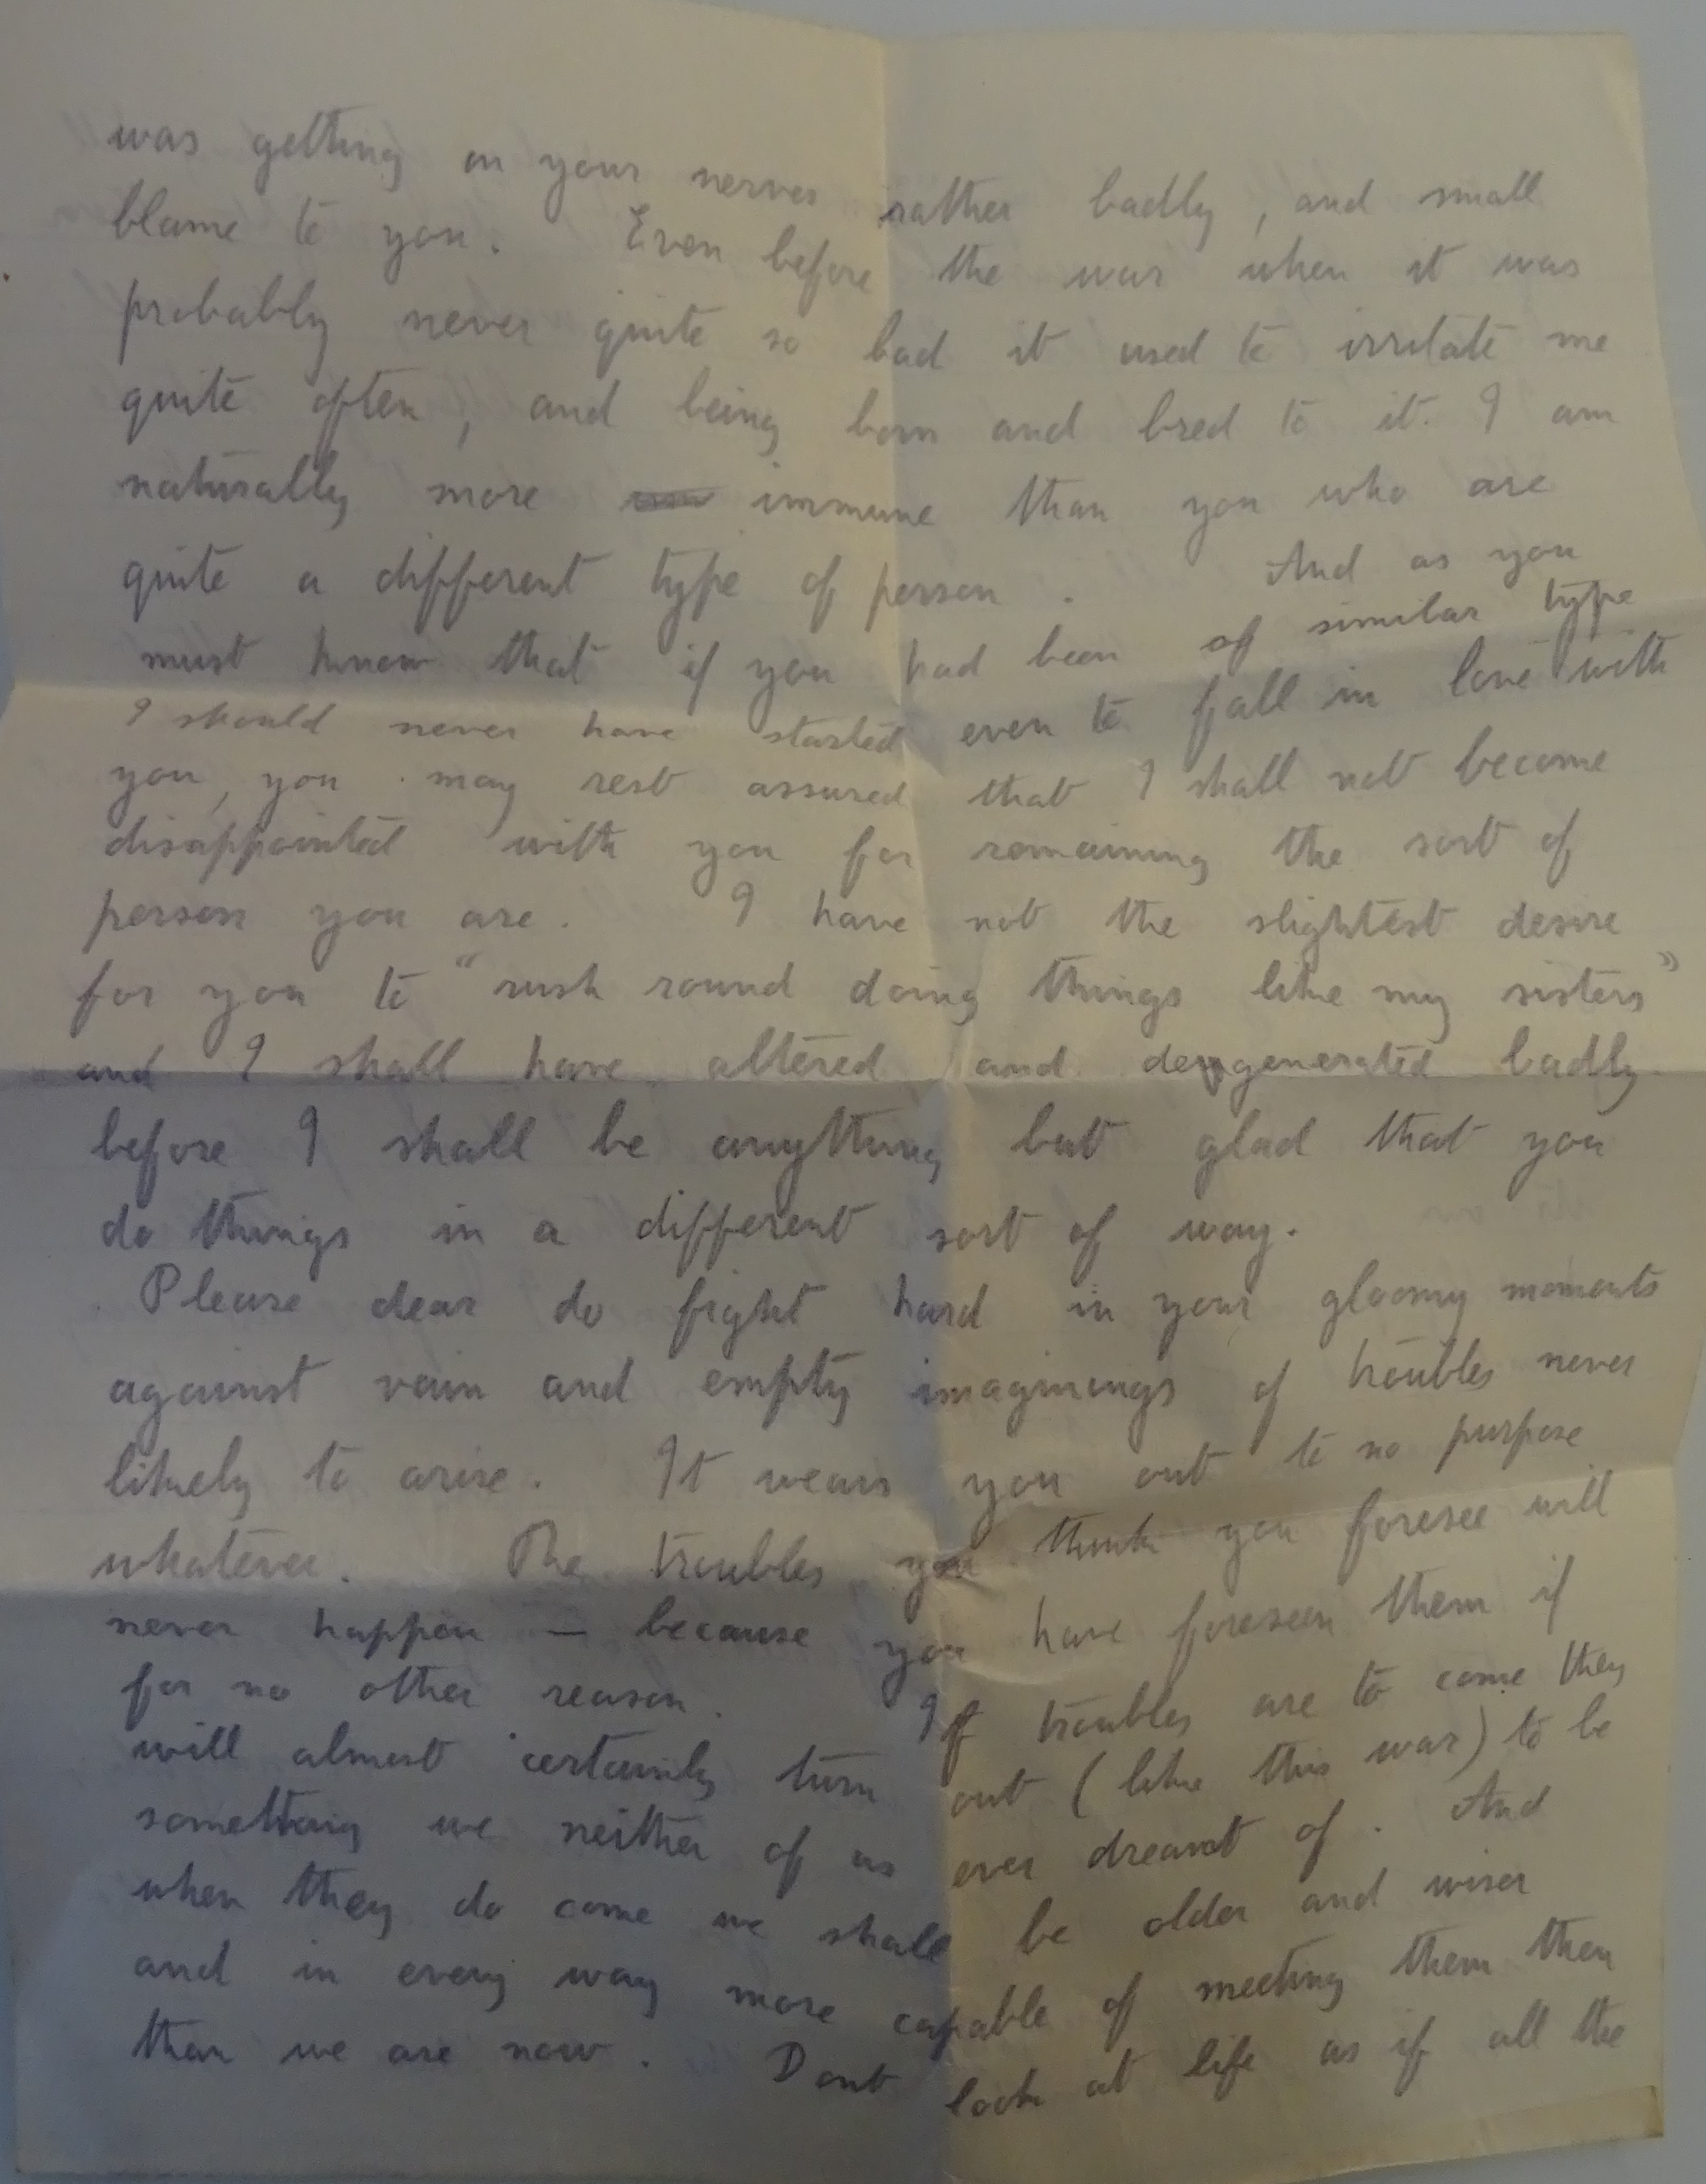 was getting on your nerves rather badly, and small
blame to you. Even before the war when it was
probably never quite so bad it used to irritate me
quite often, and being born and bred to it. I am
naturally more immune than you who are
quite a different type of person. And as you
must know that if you had been of similar type
I should never have started even to fall in love with
you, you may rest assured that I shall not become
disappointed with you for remaining the sort of
person you are. I have not the slightest desire
for you to "rush round doing things like my sisters"
and I shall have altered and degenerated badly
before I shall be anything but glad that you
do things in a different sort of way.
Please dear do fight hard in your gloomy moments
against vain and empty imaginings of troubles never
likely to arise. It wears you out to no purpose
whatever. The troubles you think you foresee will
never happen – because you have foreseen them if
for no other reason. If troubles are to come they
will almost certainly turn out (like this war) to be
something we neither of us ever dreamt of. And
when they do come we shall be older and wiser
and in every way more capable of meeting them then
than we are now. Dont look at life as if all the